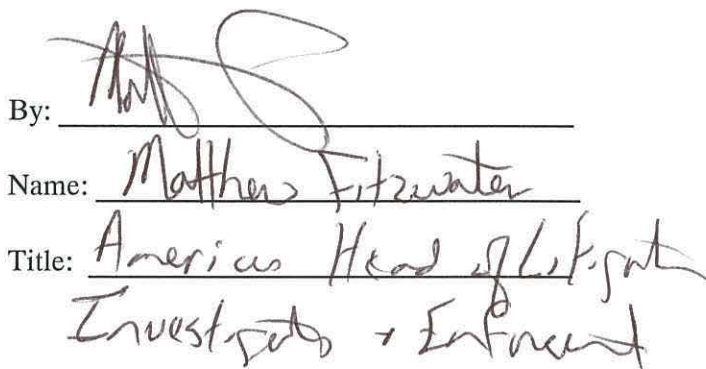 By:
Name: Matthew Fitzwater
Title: Americas Head of Litigation
Investigations + Enforcement